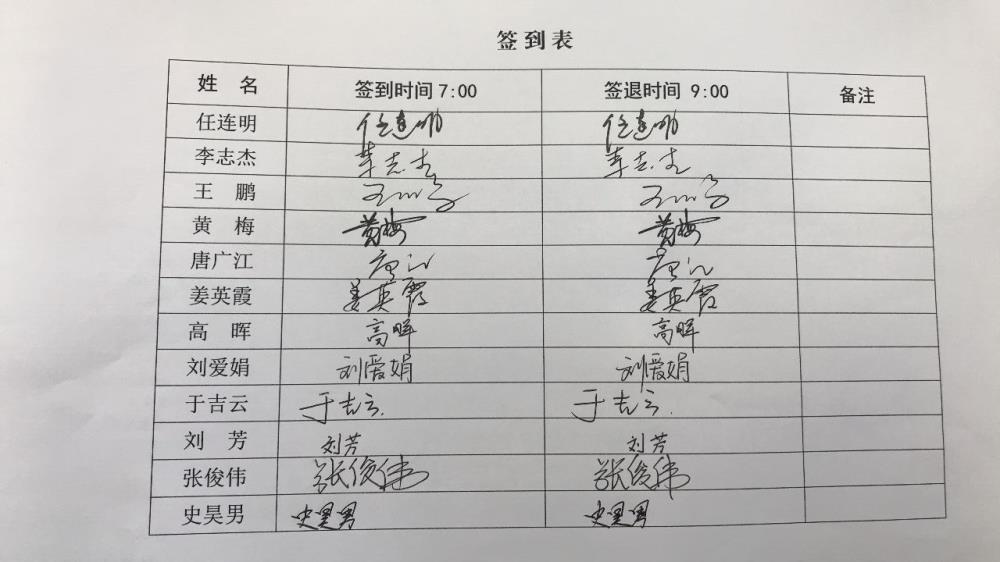 签到表
姓 名 签到时间7:00 签退时间 9:00 备注
任连明 任连明 任连明
李志杰 李志杰 李志杰
王 鹏 王鹏 王鹏
黄 梅 黄梅 黄梅
唐广江 唐广江 唐广江
姜英霞 姜英霞 姜英霞
高 晖 高晖 高晖
刘爱娟 刘爱娟 刘爱娟
于吉云 于吉云 于吉云
刘 芳 刘芳 刘芳
张俊伟 张俊伟 张俊伟
史昊男 史昊男 史昊男